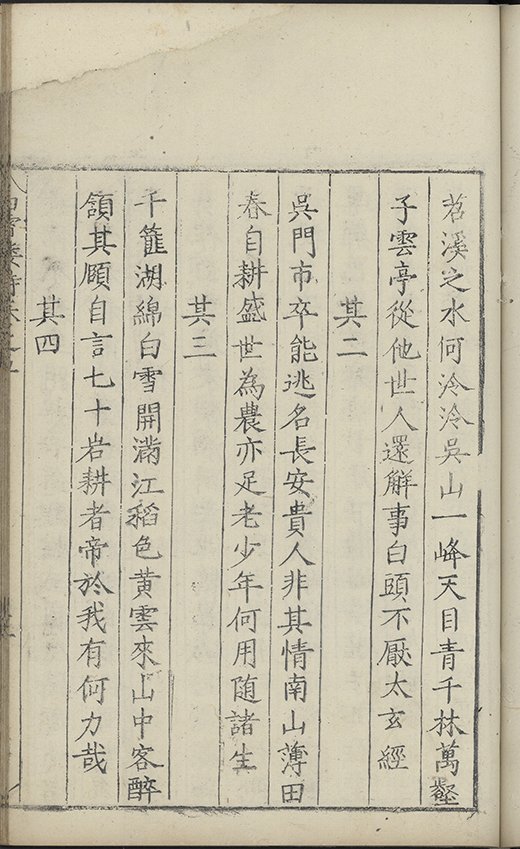 苕溪之水何泠泠吳山一峰天目青千林萬壑
子雲亭從他世人還解事白頭不厭太玄經
其二
吳門市卒能逃名長安貴人非其情南山薄田
春自耕盛世為農亦足老少年何用随諸生
其三
千簁湖綿白雪開滿江稻色黃雲來山中客醉
頷其頤自言七十岩耕者帝於我有何力哉
其四